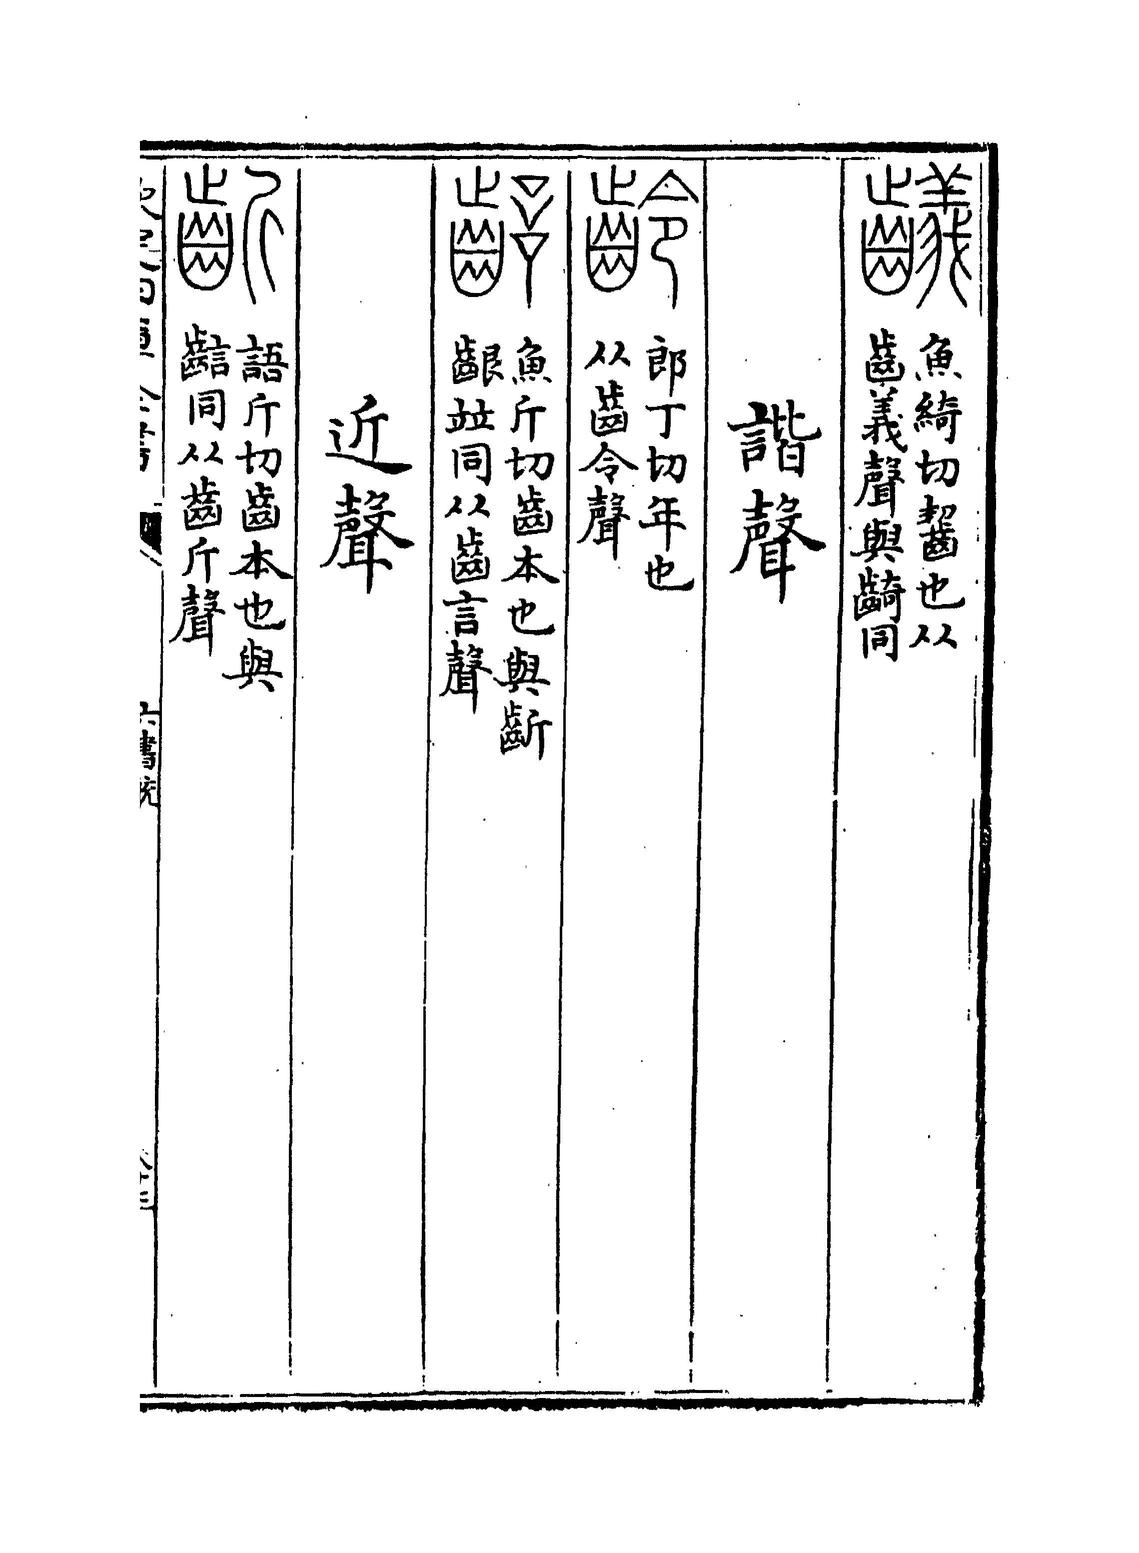 魚綺切齧也从
齒義聲與齮同
諧聲
齡
郎丁切年也
从齒令聲
魚斤切齒本也與齗
齦竝同从齒言聲
近聲
齗
語斤切齒本也與
同从齒斤聲
欽定四庫全書
六書統